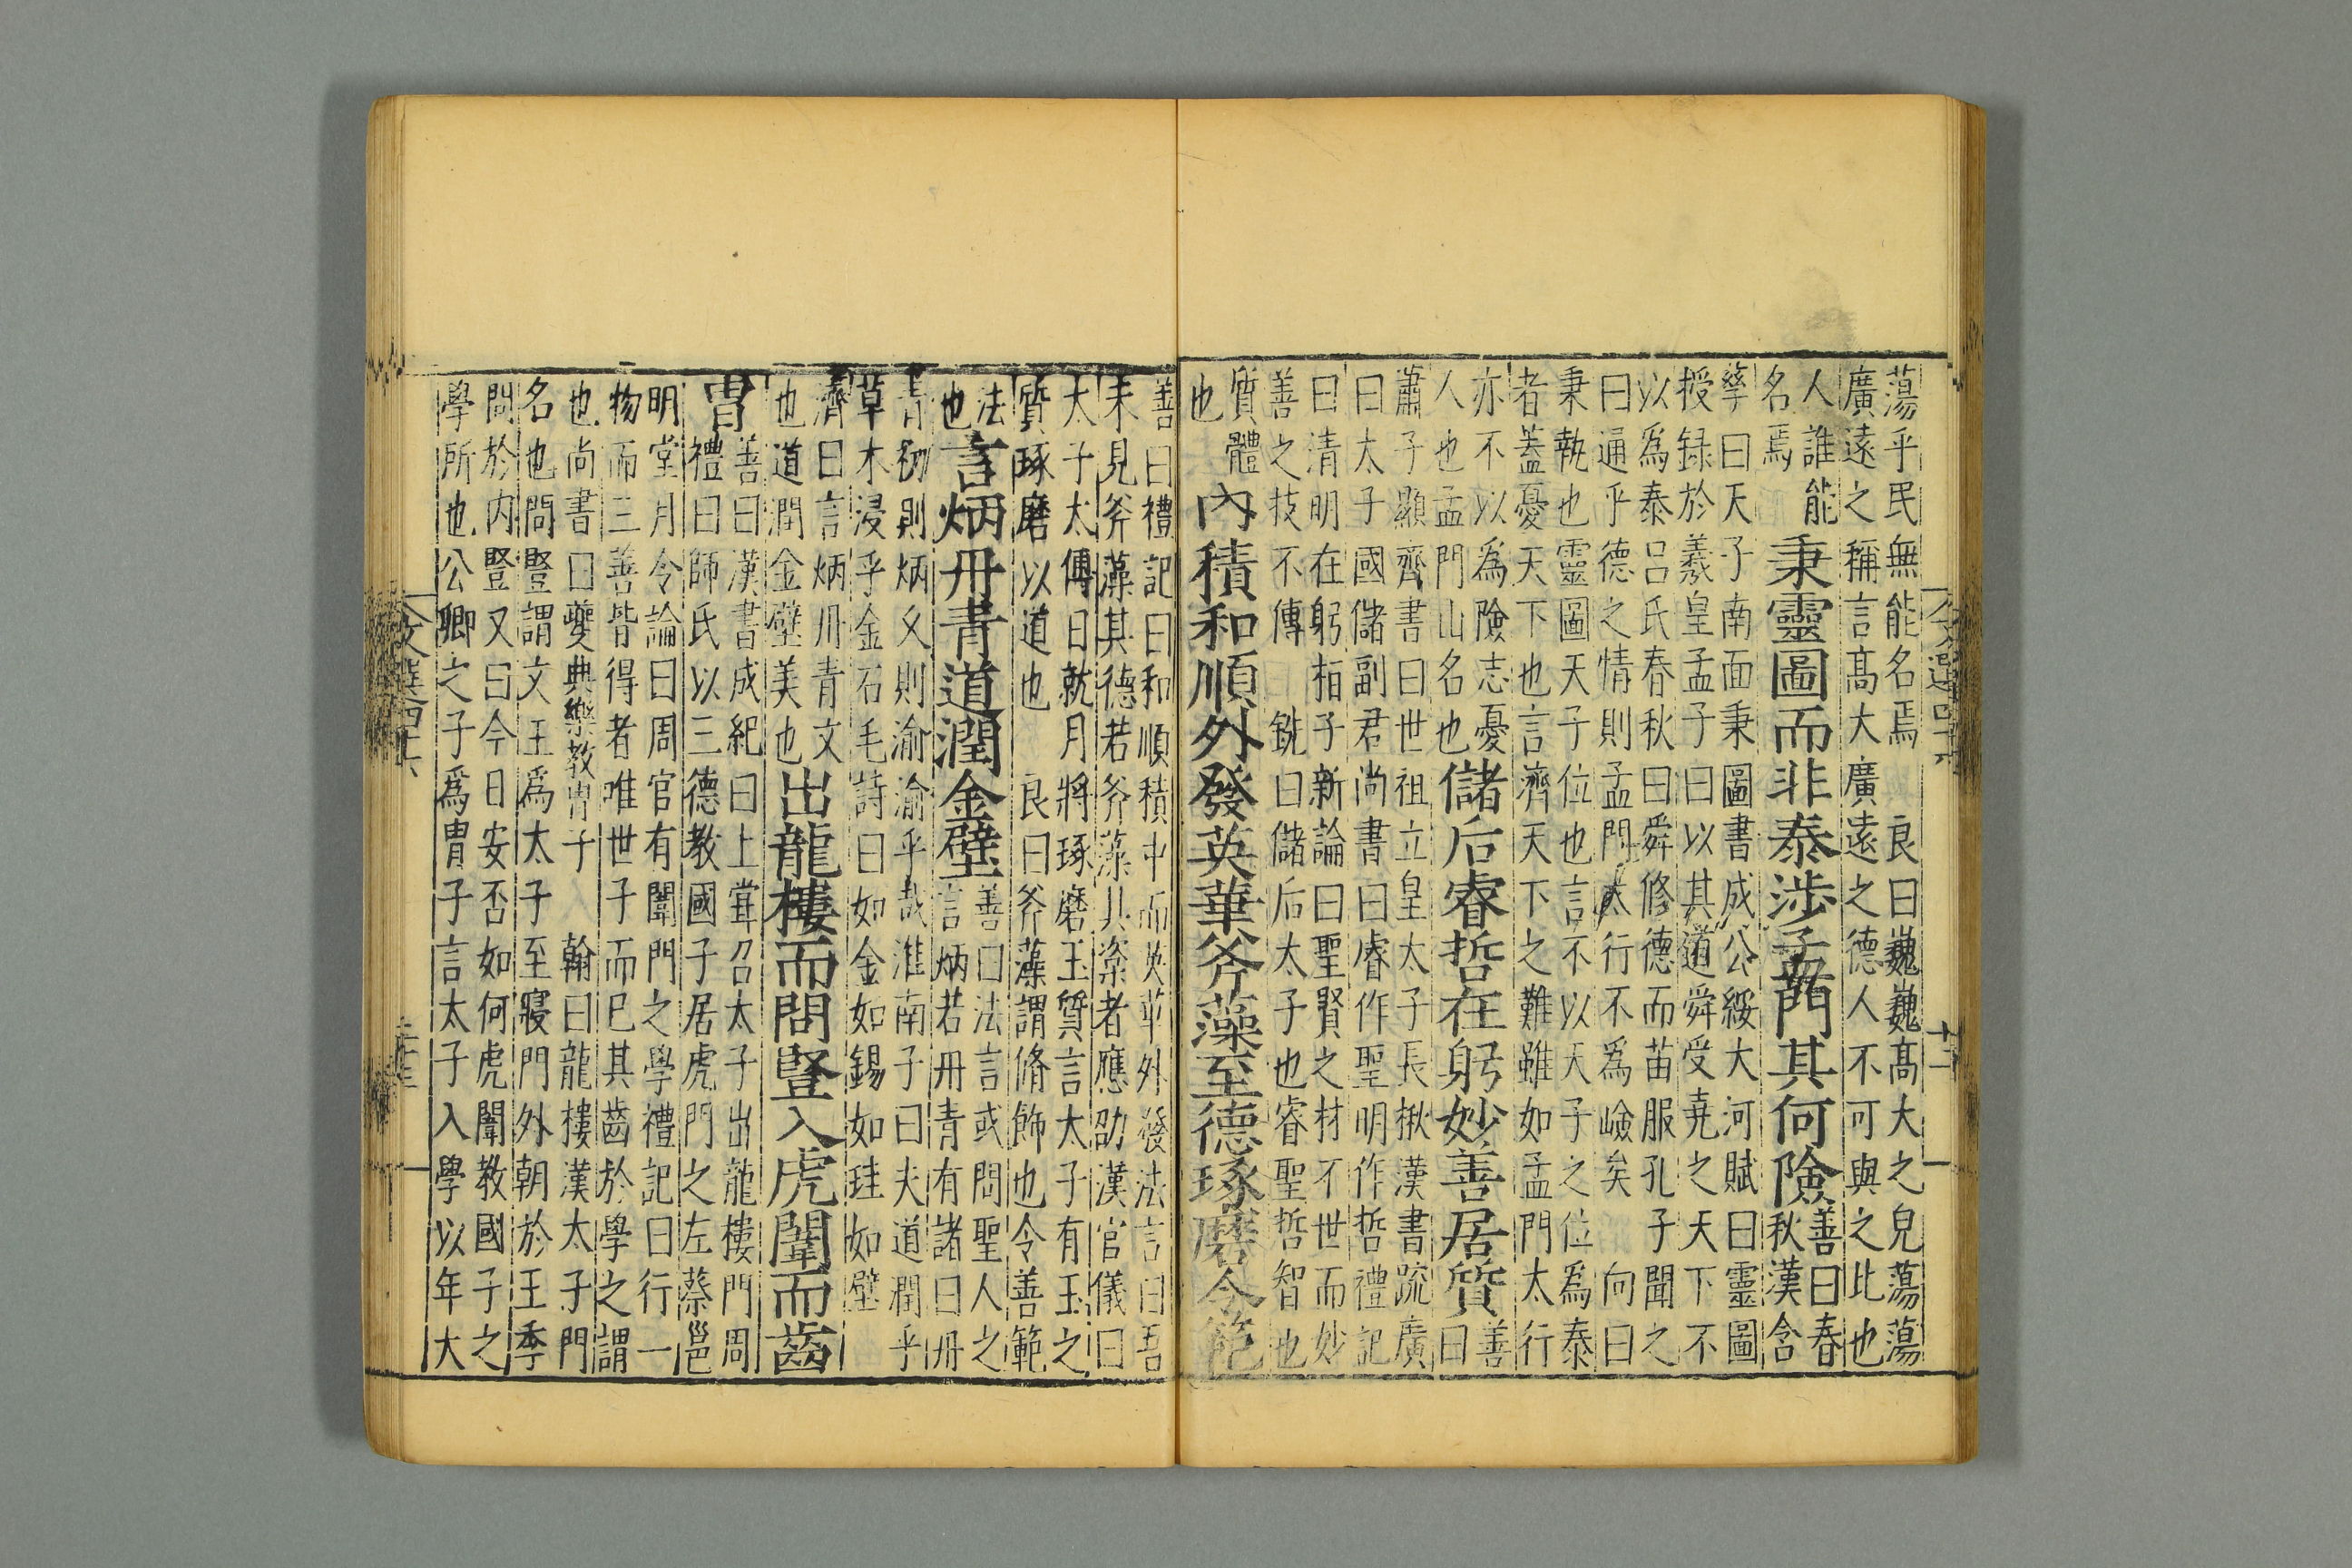 蕩乎民無能名焉 良曰巍巍髙大之皃蕩蕩
廣遠之稱言髙大廣遠之德人不可與之此也
人誰能
名焉
秉靈圖而非泰涉孟門其何險
善曰春
秋漢含
孳曰天子南面秉圖書成公綏大河賦曰靈圖
授録於羲皇孟子曰以其道舜受堯之天下不
以爲泰吕氏春秋曰舜修德而苗服孔子聞之
曰通乎德之情則孟門太行不爲嶮矣 向曰
秉執也靈圖天子位也言不以天子之位爲泰
者蓋憂天下也言濟天下之難雖如孟門太行
亦不以爲險志憂
人也孟門山名也
儲后睿哲在躬妙善居質
善
曰
蕭子顯齊書曰世祖立皇太子長楸漢書疏廣
曰太子國儲副君尚書曰睿作聖明作哲禮記
曰清明在躬桓子新論曰聖賢之材不世而妙
善之技不傳 銑曰儲后太子也睿聖哲智也
質體
也
內積和順外發英華斧藻至德琢磨令範
善曰禮記曰和順積中而英華外發法言曰吾
未見斧藻其德若斧藻其楶者應劭漢官儀曰
太子太傅日就月將琢磨玉質言太子有玉之
質琢磨以道也 良曰斧藻謂脩飾也令善範
法
也
言炳丹青道潤金璧
善曰法言或問聖人之
言炳若丹青有諸曰丹
青初則炳久則渝渝乎哉淮南子曰夫道潤乎
草木浸乎金石毛詩曰如金如錫如珪如璧
濟曰言炳丹青文
也道潤金璧美也
出龍樓而問豎入虎闈而齒
胄
善曰漢書成紀曰上甞召太子出龍樓門周
禮曰師氏以三德教國子居虎門之左蔡邕
明堂月令論曰周官有闈門之學禮記曰行一
物而三善皆得者唯世子而已其齒於學之謂
也尚書曰夔典樂教胄子 翰曰龍樓漢太子門
名也問豎謂文王爲太子至寢門外朝於王季
問於内豎又曰今日安否如何虎闈教國子之
學所也公卿之子爲胄子言太子入學以年大
文選四十六